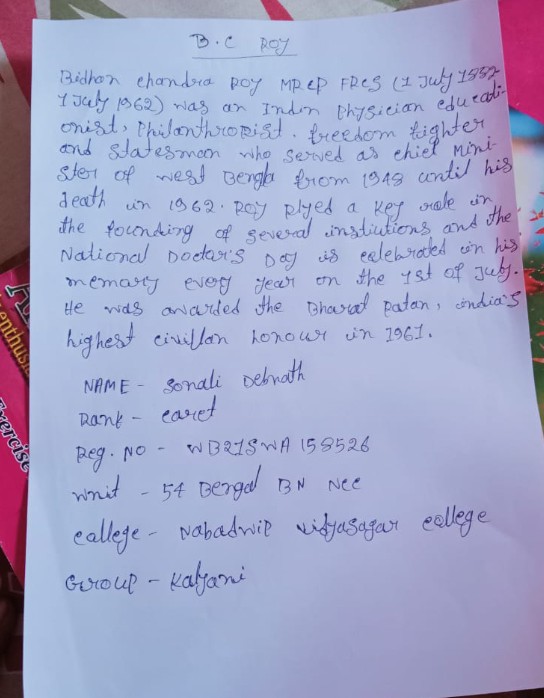 B.C ROY
Bidhan chandra ROY MRCP FRCS (1 July 1882
1 July 1962) was an Indin Physician educati-
onist, Philanthropist. freedom fighter
and statesman who served as chief Mini-
ster of west Bengla from 1948 until his
death in 1962. Roy plyed a key role in
the founding of several instiutions and the
National Doctar's Day is celebrated in his
memary every year on the 1st of July.
He was awarded the Bharat Ratan, india's
highest civillan honour in 1961.
NAME - Sonali Debnath
Rank - caret
Reg. NO - WB21SWA158526
Unit - 54 Bengal BN NCC
College - Nabadwip Vidyasagar College
Group - Kalyani
enthus
Exercise